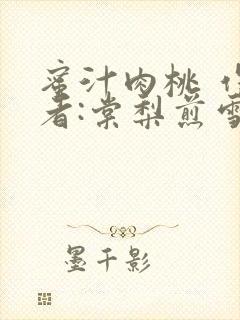 蜜汁肉桃 作
者:棠梨煎雪
墨千影